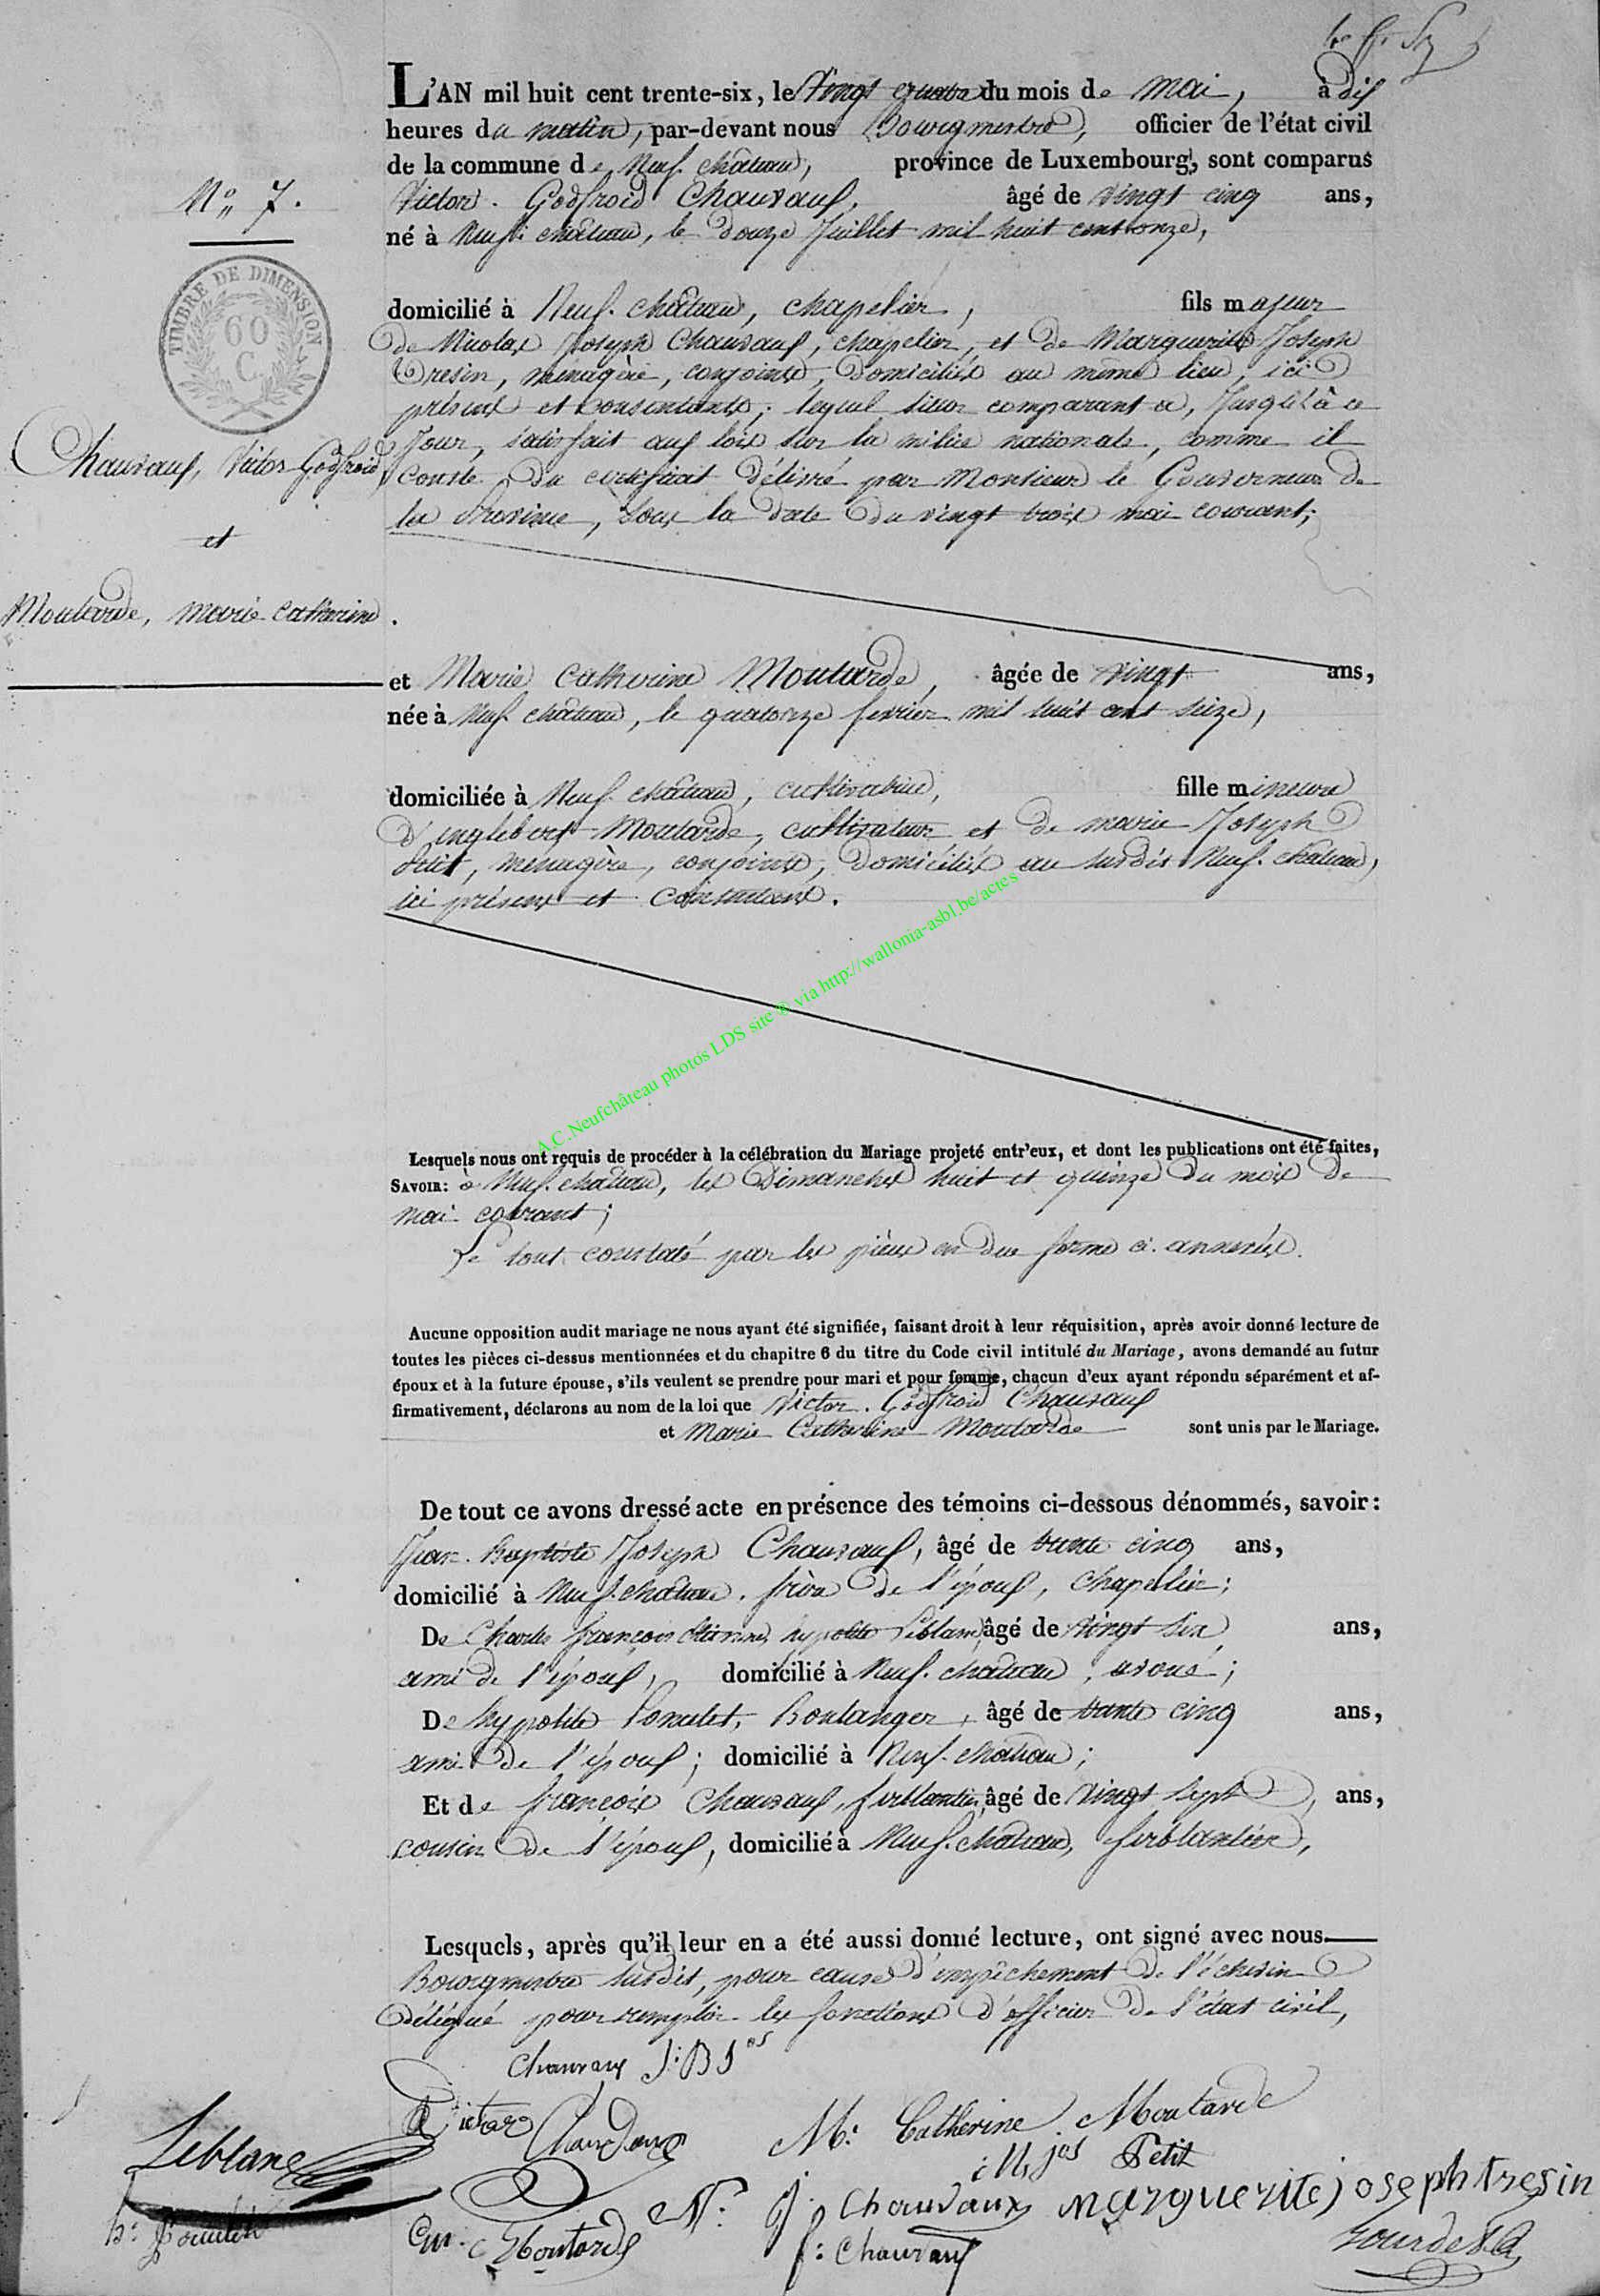 L'AN mil huit cent trente-six, le vingt quatre du mois de mai, à dix
heures du matin, par-devant nous Bourgmestre, officier de l'état civil
de la commune de Neuf-château, province de Luxembourg, sont comparus
Victor-Godfroid Chauvaux, âgé de vingt cinq ans,
né à Neuf-château, le douze Juillet mil huit cent onze,
N° 7.
TIMBRE DE DIMENSION
60
C.
domicilié à Neuf-château, chapelier, fils majeur
de Nicolas Joseph Chauvaux, chapelier, et de Marguerite Joseph
Tresin, ménagère, conjoints, domiciliés au même lieu, ici
présents et consentants; lequel sieur comparant a, Jusqu'à ce
Jour, satisfait aux lois sur la milice nationale, comme il
conste du certificat délivré par Monsieur le Gouverneur de
la Province, sous la date du vingt trois mai courant;
Chauvaux, Victor-Godfroid
et
Moutarde, marie catherine.
et Marie Catherine Moutarde, âgée de vingt ans,
née à Neuf-château, le quatorze fevrier mil huit cent seize,
domiciliée à Neuf-château, cultivatrice, fille mineure
d'Englebert Moutarde, cultivateur et de marie Joseph
Petit, ménagère, conjoints, domiciliés au susdit Neuf-château,
ici présents et consentants.
A.C.Neufchâteau photos LDS site © via http://wallonia-asbl.be/actes
Lesquels nous ont requis de procéder à la célébration du Mariage projeté entr'eux, et dont les publications ont été faites,
SAVOIR: à Neuf-château, les Dimanches huit et quinze du mois de
mai courant;
Le tout constaté par les pièces en due forme ci-annexées.
Aucune opposition audit mariage ne nous ayant été signifiée, faisant droit à leur réquisition, après avoir donné lecture de
toutes les pièces ci-dessus mentionnées et du chapitre 6 du titre du Code civil intitulé du Mariage, avons demandé au futur
époux et à la future épouse, s'ils veulent se prendre pour mari et pour femme, chacun d'eux ayant répondu séparément et af-
firmativement, déclarons au nom de la loi que Victor-Godfroid Chauvaux
et Marie Catherine Moutarde sont unis par le Mariage.
De tout ce avons dressé acte en présence des témoins ci-dessous dénommés, savoir:
Jean-Baptiste Joseph Chauvaux, âgé de trente cinq ans,
domicilié à Neuf-château, frère de l'époux, chapelier;
De Charles françois étienne hypolite Leblanc, âgé de vingt six ans,
ami de l'époux, domicilié à Neuf-château, avoué;
De hypolite Poncelet, Boulanger, âgé de trente cinq ans,
ami de l'époux; domicilié à Neuf-château;
Et de françois Chauvaux, ferblantier, âgé de vingt sept ans,
cousin de l'époux, domicilié à Neuf-château, ferblantier,
Lesquels, après qu'il leur en a été aussi donné lecture, ont signé avec nous
Bourgmestre susdit, pour cause d'empêchement de l'échevin
délégué pour remplir les fonctions d'officier de l'état civil,
Chauvaux J: B Jos
Victor Chauvaux M: Catherine Moutarde
Leblanc M. jos Petit
N: J: Chauvaux marguerite joseph tresin
h: Poncelet Moutarde f: Chauvaux